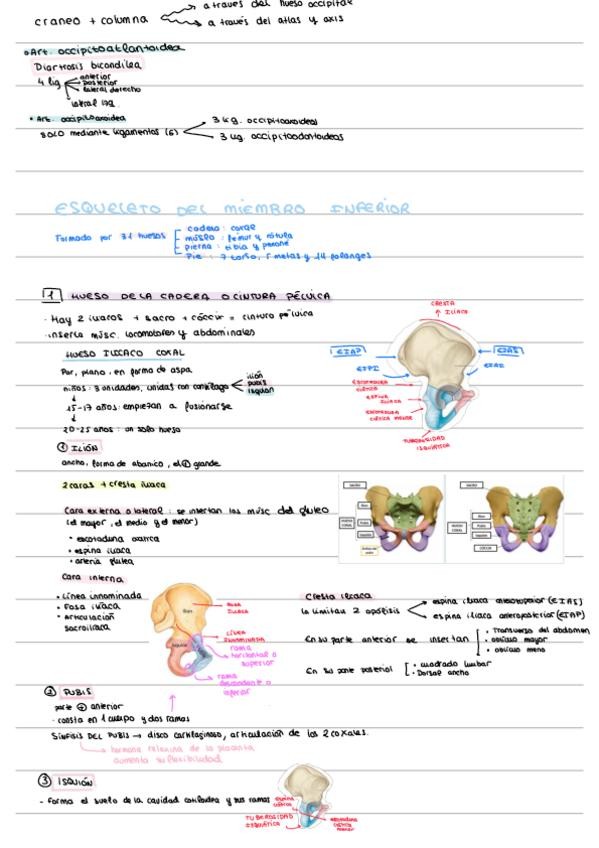 craneo + columna
a traves del hueso occipital
a través del atlas y axis
Art. occipitoatlantoidea
Diartrosis bicondilea
4 lig
anterior
posterior
lateral derecho
lateral izq
Art. occipitoaxoidea
solo mediante ligamentos (6)
3 lig. occipitoaxoideos
3 lig. occipitoodontoideos
ESQUELETO DEL MIEMBRO INFERIOR
Formado por 31 huesos
cadera: coxal
muslo: femur y rótula
pierna: tibia y peroné
Pie: 7 tarso, 5 metas y 14 falanges
1 HUESO DE LA CADERA O CINTURA PÉLVICA
· Hay 2 iliacos + sacro + cóccix = cintura pélvica
· inserta músc. locomotores y abdominales
HUESO ILIACO COXAL
Par, plano, en forma de aspa
niños: 3 unidades, unidas con cartílago
ilión
pubis
isquion
15-17 años: empiezan a fusionarse
20-25 años: un solo hueso
CRESTA ILIACA
EIAP
EIPI
EIAS
EIAI
ESCOTADURA CIÁTICA
ESPINA ILIACA
ESCOTADURA CIÁTICA MENOR
TUBEROSIDAD ISQUIÁTICA
1 ILIÓN
ancho, forma de abanico, el + grande
2 caras + cresta iliaca
Cara externa o lateral: se insertan los músc del gluteo
(el mayor, el medio y el menor)
• escotadura
• espina iliaca
• arteria glutea
Cara interna
• Línea innominada
• Fosa iliaca
• Articulación sacroiliaca
Ilion
Isquion
FOSA ILIACA
LÍNEA INNOMINADA
rama horizontal o superior
rama descendante o inferior
SACRO
Ilion
HUESO COXAL
Pubis
Isquion
SACRO
Ilion
HUESO COXAL
Pubis
Isquion
CÓCCIX
Cresta iliaca
la limitan 2 apófisis
espina iliaca anterosuperior (EIAS)
espina iliaca anteroposterior (EIAP)
En su parte anterior se insertan
• Transverso del abdomen
• oblicuo mayor
• oblicuo meno
En su parte posterior
• cuadrado lumbar
• Dorsal ancho
2 PUBIS
parte + anterior
· consta en 1 cuerpo y dos ramas
SÍNFISIS DEL PUBIS → disco cartilaginoso, articulación de los 2 coxales.
hormona relaxina de la placenta
aumenta su flexibilidad
3 ISQUIÓN
- Forma el suelo de la cavidad cotiloidea y sus ramas
espina ciática
TUBEROSIDAD ISQUIÁTICA
escotadura ciática menor